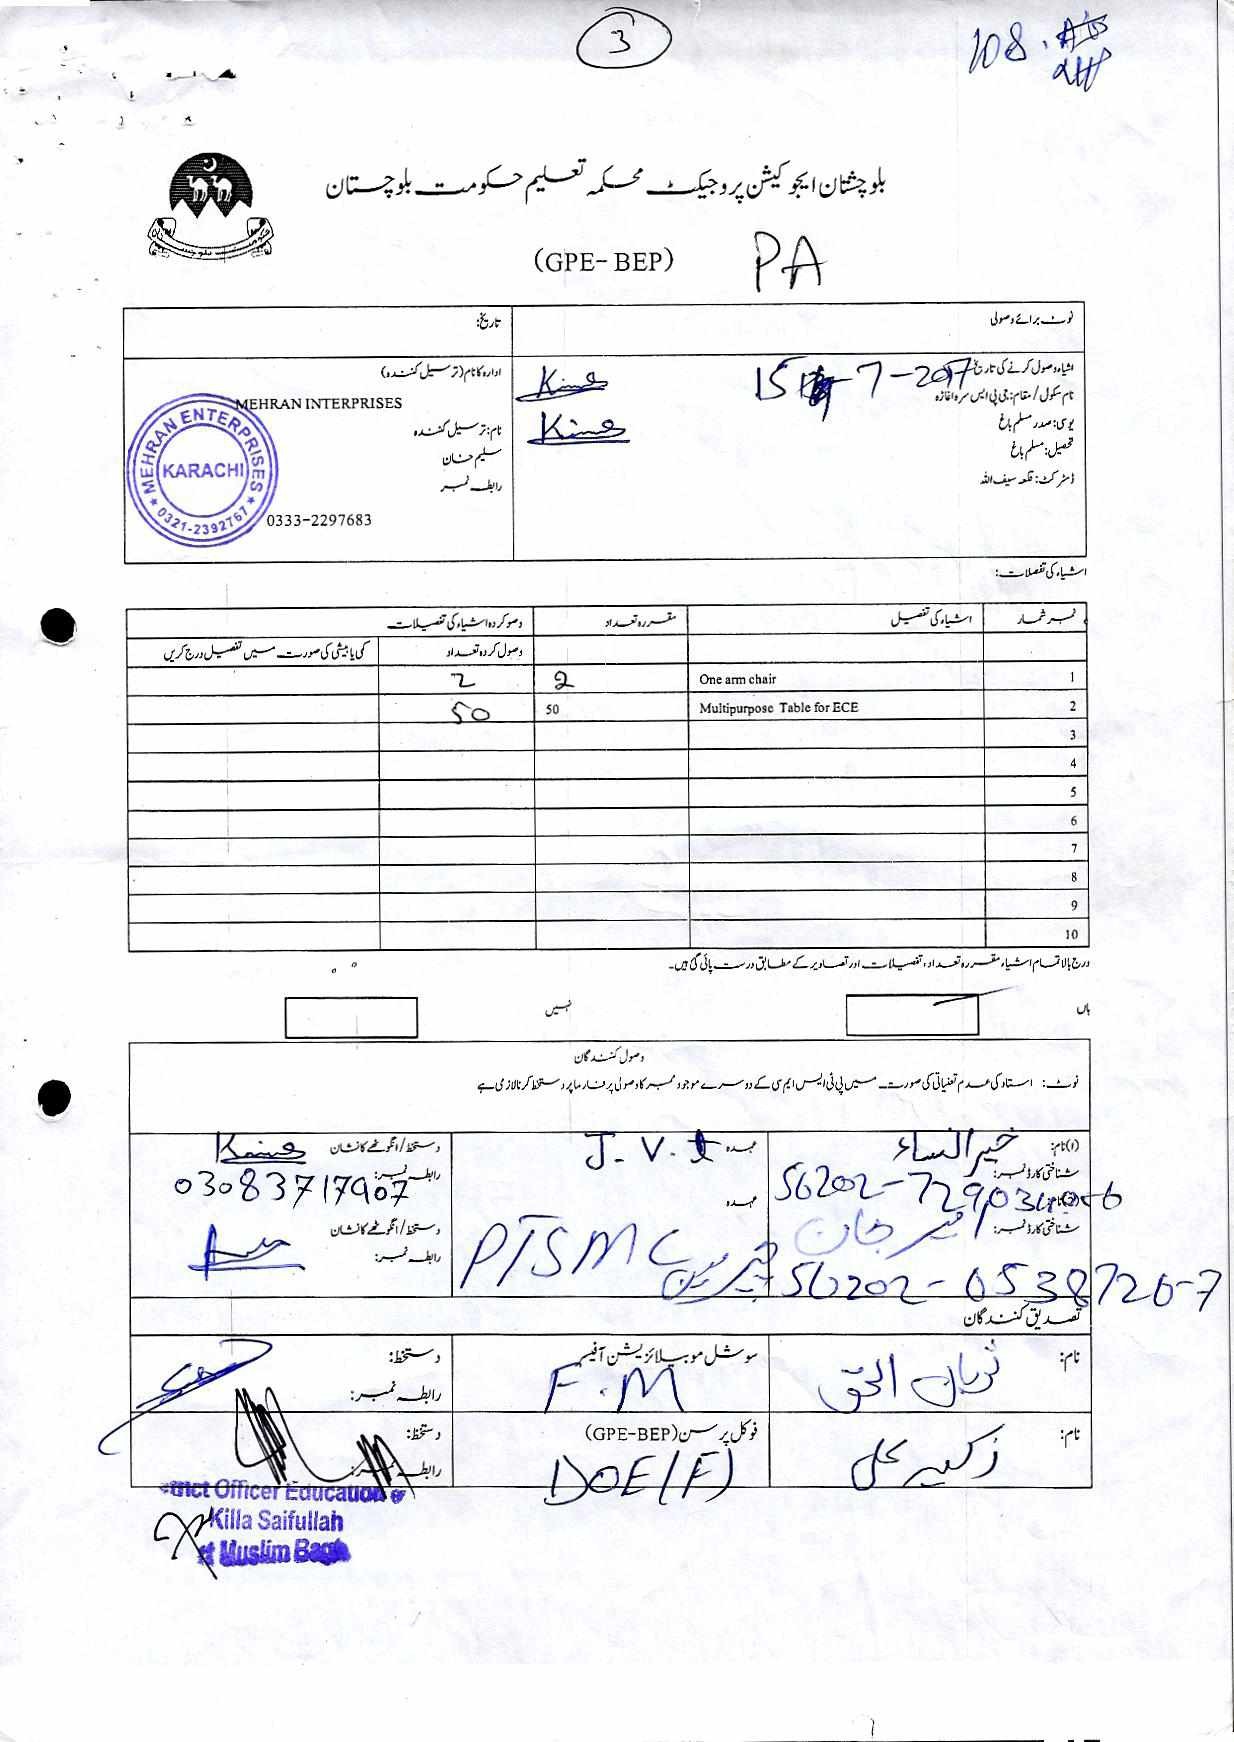 3
108.
بلوچستان ایجوکیشن پروجیکٹ محکمہ تعلیم حکومت بلوچستان
(GPE-BEP) PA
نوٹ برائے وصولی
تاریخ:
اشیاء وصول کرنے کی تاریخ 15-7-2017
نام سکول / مقام: جی پی ایس سرہ اغازہ
یو سی: صدر مسلم باغ
تحصیل: مسلم باغ
ڈسٹرکٹ: قلعہ سیف اللہ
ادارہ کا نام (ترسیل کنندہ)
MEHRAN INTERPRISES
نام: ترسیل کنندہ
سلیم خان
رابطہ نمبر
0333-2297683
MEHRAN ENTERPRISES
KARACHI
0321-2392767
اشیاء کی تفصلات:
نمبر شمار اشیاء کی تفصیل مقررہ تعداد وصو کردہ اشیاء کی تفصیلات
وصول کردہ تعداد کمی یا بیشی کی صورت میں تفصیل درج کریں
1 One arm chair 2 2
2 Multipurpose Table for ECE 50 50
3
4
5
6
7
8
9
10
درج بالا تمام اشیاء مقررہ تعداد، تفصیلات اور تصاویر کے مطابق درست پائی گئی ہیں۔
ہاں نہیں
وصول کنندگان
نوٹ: استاد کی عدم تعیناتی کی صورت میں پی ٹی ایس ایم سی کے دوسرے موجود ممبر کا وصولی پر فارما پر دستخط کرنا لازمی ہے
(۱) نام: خیر النساء عہدہ J.V.T دستخط / انگوٹھے کا نشان
شناختی کارڈ نمبر: رابطہ نمبر: 03083717907
عہدہ PTSMC دستخط / انگوٹھے کا نشان
شناختی کارڈ نمبر: 56202-0538720-7 رابطہ نمبر:
تصدیق کنندگان
نام: سوشل موبیلائزیشن آفیسر F.M دستخط:
رابطہ نمبر:
نام: فوکل پرسن (GPE-BEP) DOE(F) دستخط:
رابطہ نمبر:
Officer Education
Killa Saifullah
at Muslim Bagh